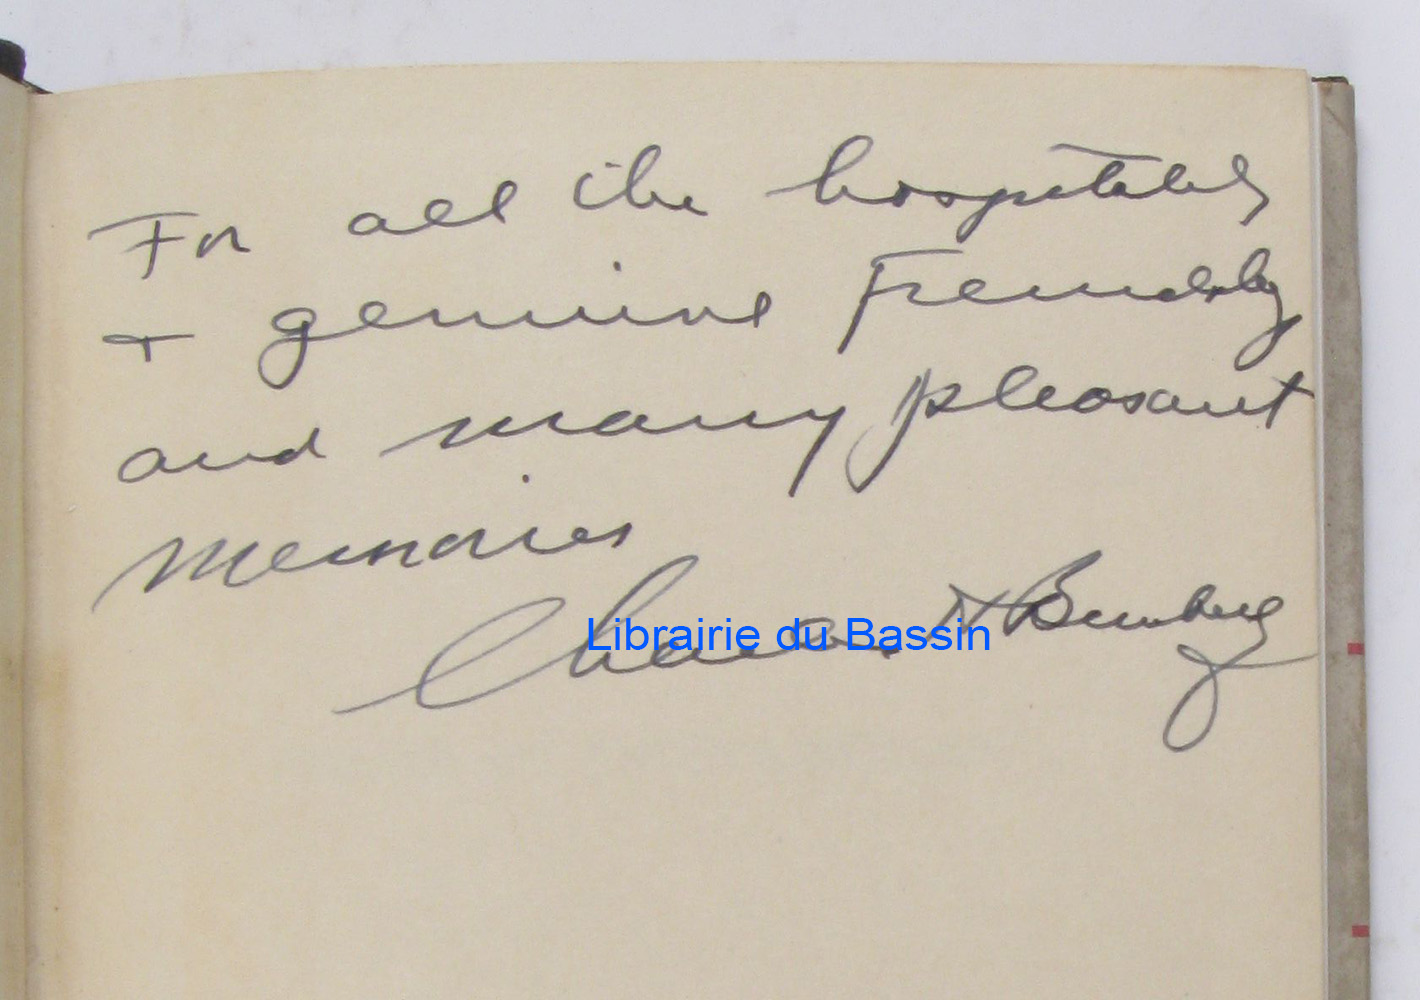 For all the hospitality
+ genuine Friendship
and many pleasant
memories
Charles H
Librairie du Bassin